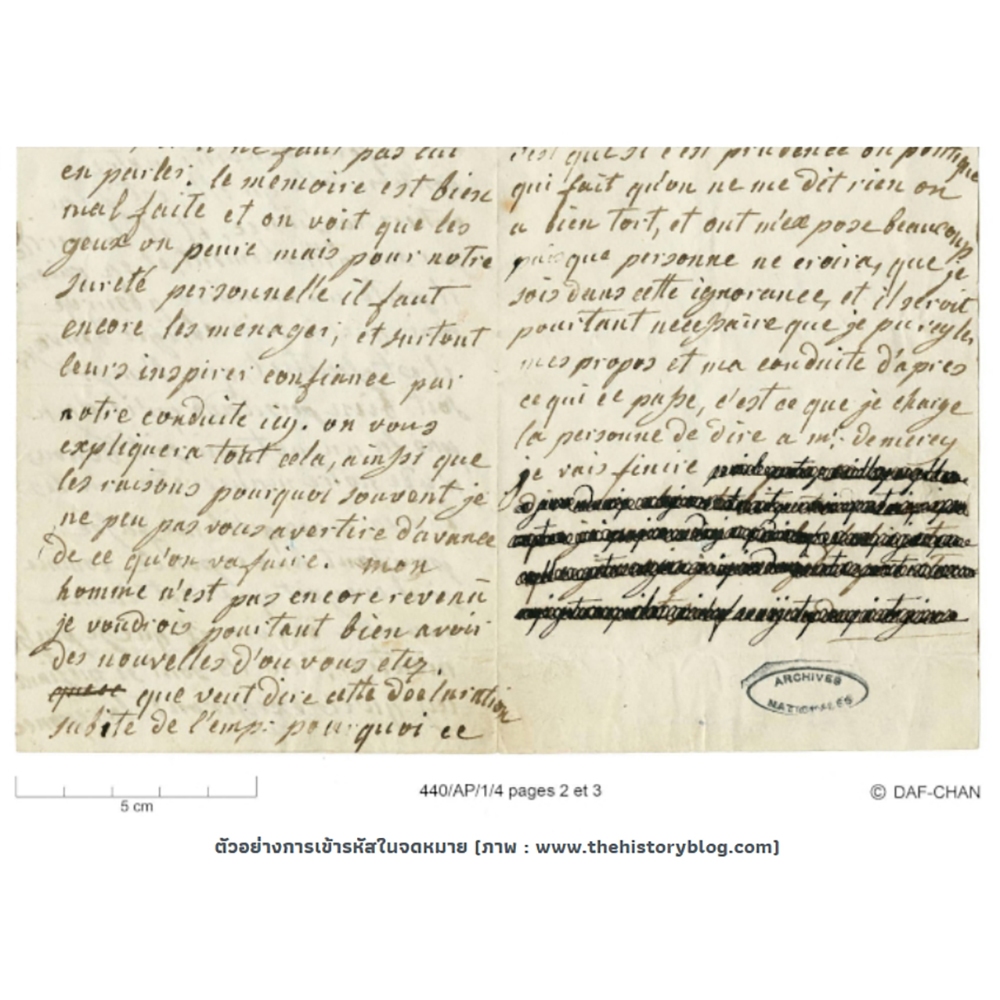 en parler. le memoire est bien
mal faite et on voit que les
geux on peure mais pour notre
sureté personnelle il faut
encore les menager, et surtout
leurs inspirer confiance par
notre conduite icy. on vous
expliquera tout cela, ainssi que
les raisons pourquoi souvent je
ne peu pas vous avertire d'avance
de ce qu'on va faire. mon
homme n'est pas encore revenû
je voudrois pourtant bien avoir
des nouvelles d'ou vous etez.
que veut dire cette declaration
subite de l'emp: pourquoi ce
qui fait qu'on ne me dit rien on
a bien tort, et ont m'expose beaucoup
puisque personne ne croira, que je
sois dans cette ignorance, et il seroit
pourtant necessaire que je pu regler
mes propos et ma conduite d'apres
ce qui ce passe, c'est ce que je charge
la personne de dire a mr. de mercy
je vais finire
ARCHIVES
NATIONALES
5 cm
440/AP/1/4 pages 2 et 3
© DAF-CHAN
ตัวอย่างการเข้ารหัสในจดหมาย (ภาพ : www.thehistoryblog.com)